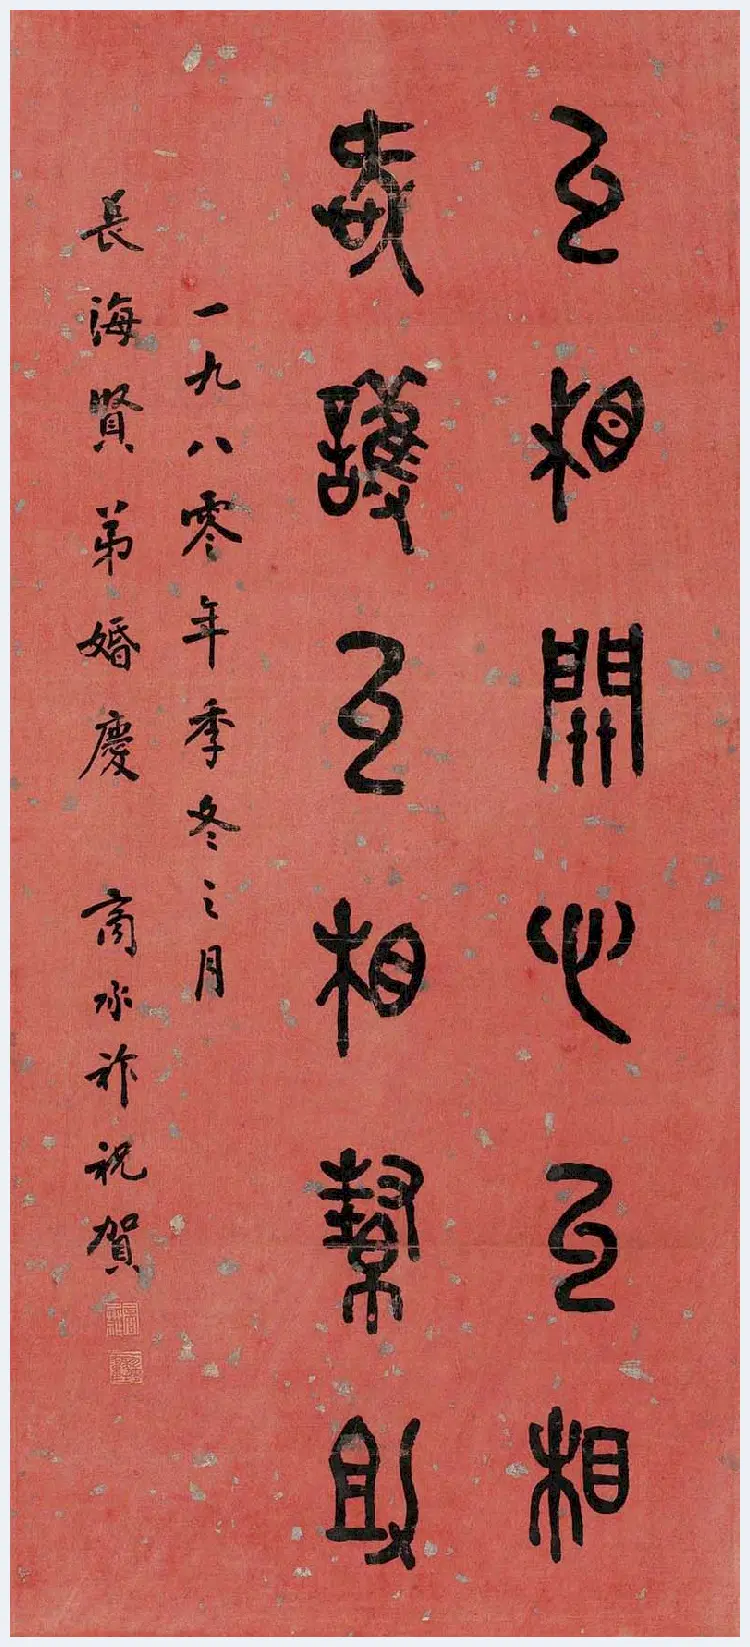 互相關心互相
愛護互相幫助
一九八零年季冬之月
長海賢弟婚慶 商承祚祝賀